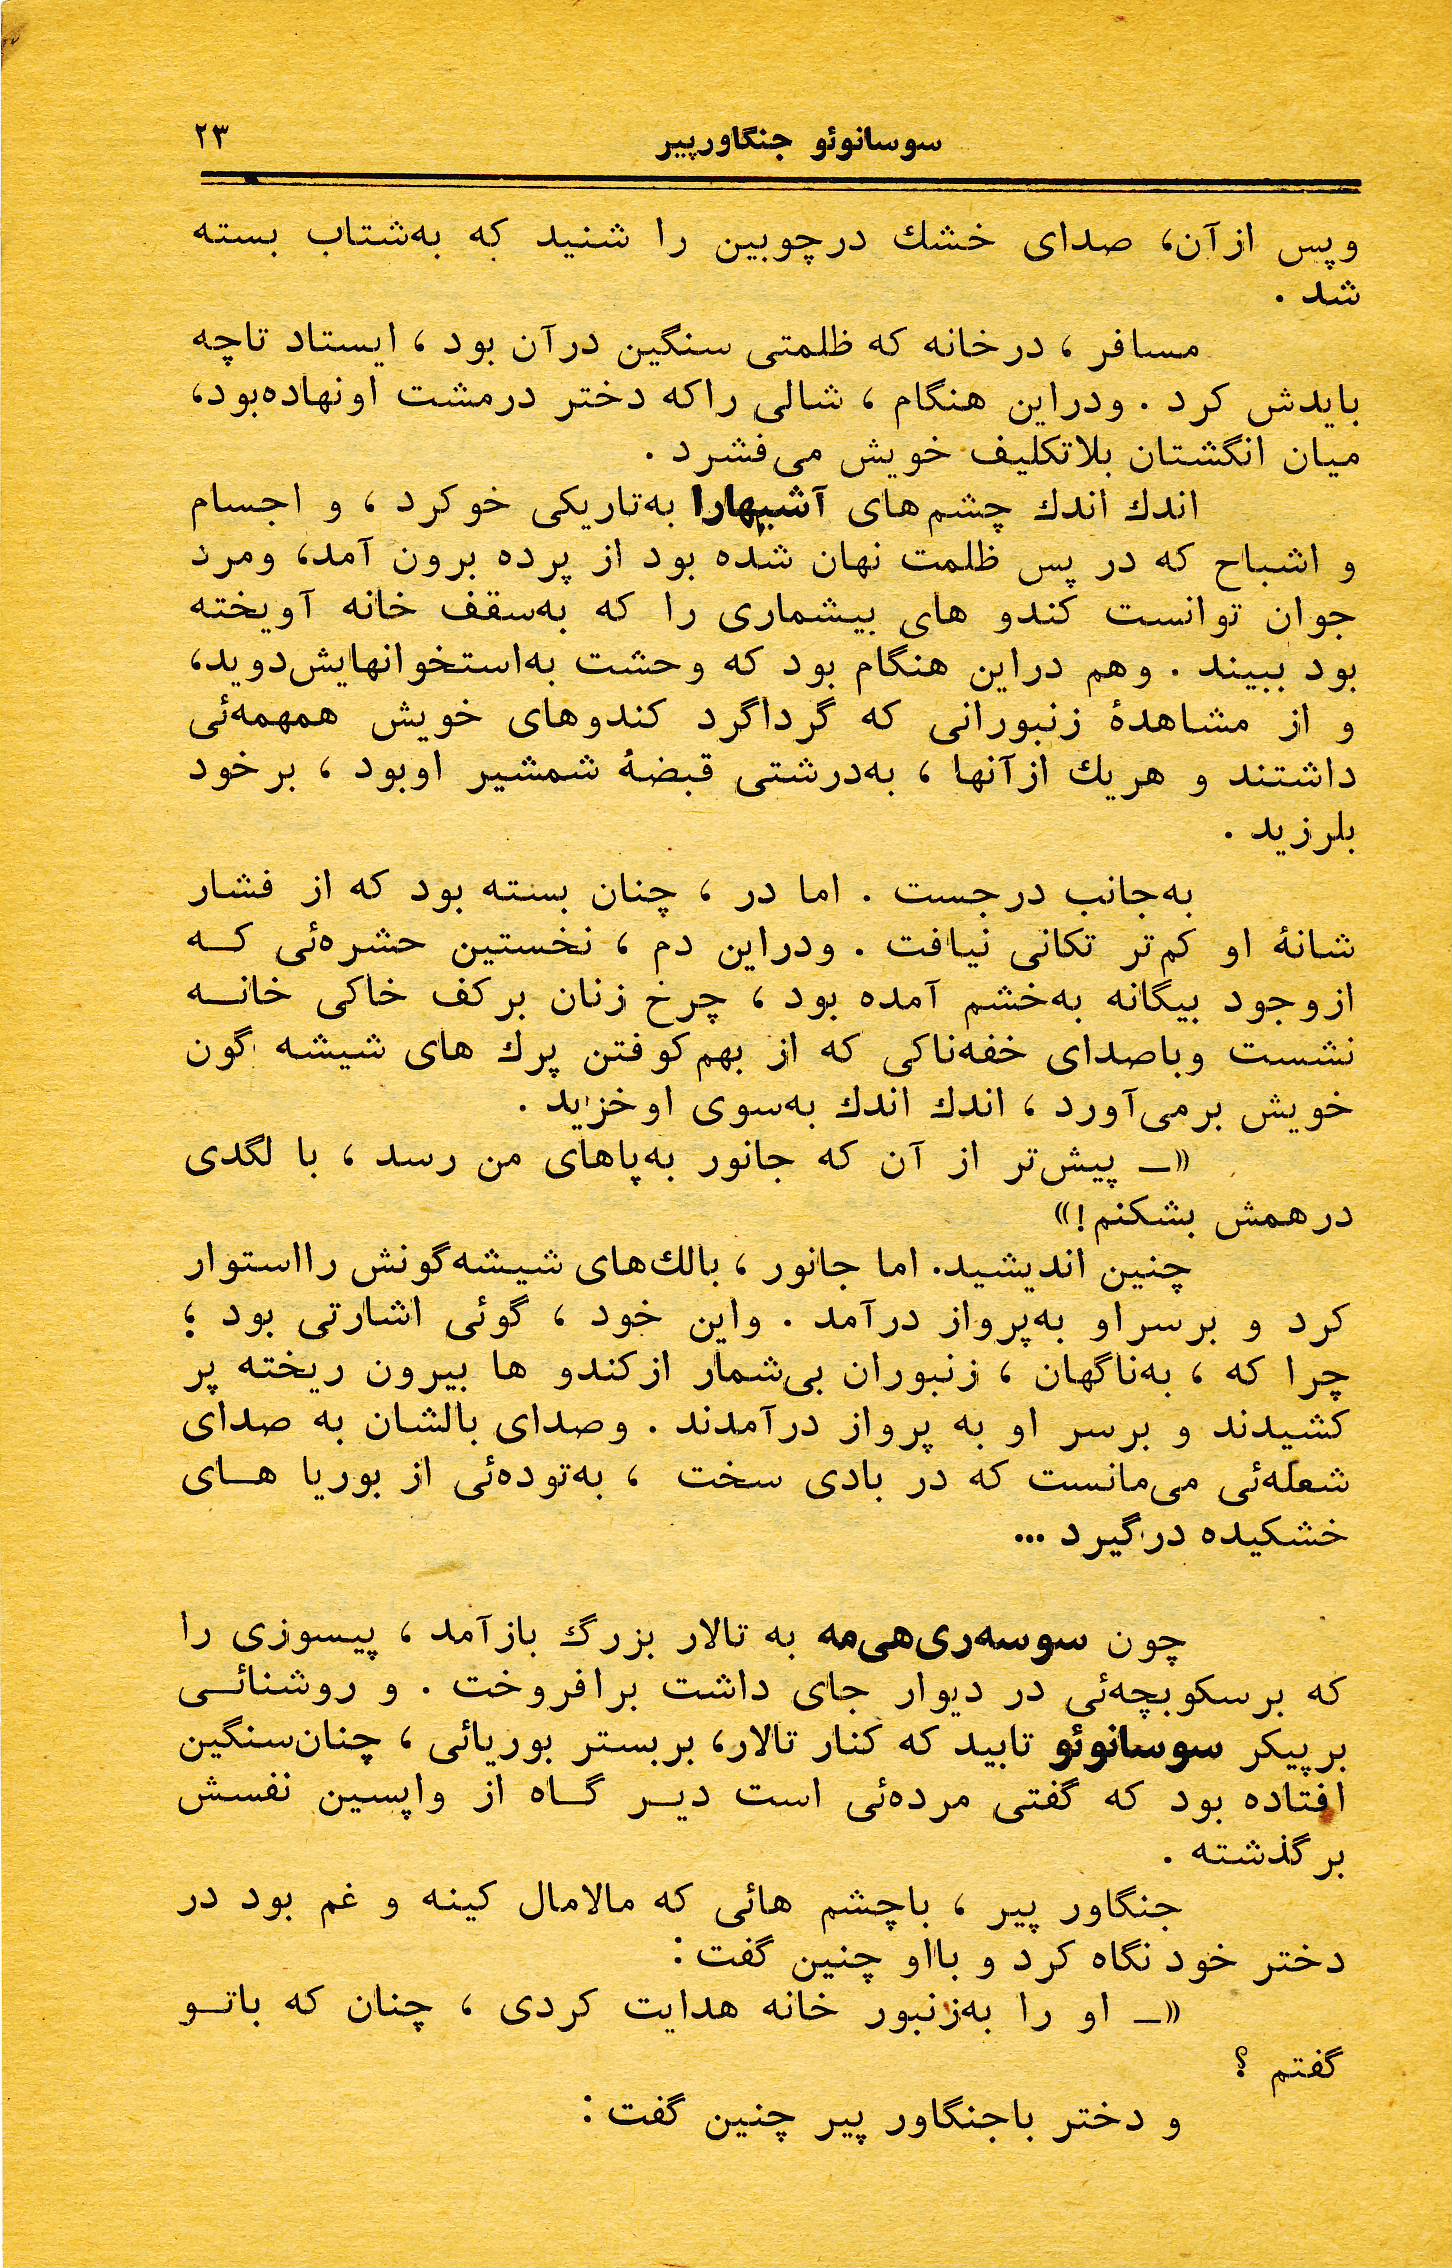 سوسانوئو جنگاورپیر ۲۳
وپس ازآن، صدای خشك درچوبین را شنید که به‌شتاب بسته
شد .
مسافر ، درخانه که ظلمتی سنگین درآن بود ، ایستاد تاچه
بایدش کرد . ودراین هنگام ، شالی راکه دختر درمشت اونهاده‌بود،
میان انگشتان بلاتکلیف خویش می‌فشرد .
اندك اندك چشم‌های آشیهارا به‌تاریکی خوکرد ، و اجسام
و اشباح که در پس ظلمت نهان شده بود از پرده برون آمد، ومرد
جوان توانست کندو های بیشماری را که به‌سقف خانه آویخته
بود ببیند . وهم دراین هنگام بود که وحشت به‌استخوانهایش‌دوید،
و از مشاهدهٔ زنبورانی که گرداگرد کندوهای خویش همهمه‌ئی
داشتند و هریك ازآنها ، به‌درشتی قبضهٔ شمشیر اوبود ، برخود
بلرزید .
به‌جانب درجست . اما در ، چنان بسته بود که از فشار
شانهٔ او کم‌تر تکانی نیافت . ودراین دم ، نخستین حشره‌ئی کــه
ازوجود بیگانه به‌خشم آمده بود ، چرخ زنان برکف خاکی خانــه
نشست وباصدای خفه‌ناکی که از بهم‌کوفتن پرك های شیشه گون
خویش برمی‌آورد ، اندك اندك به‌سوی اوخزید .
«ــ پیش‌تر از آن که جانور به‌پاهای من رسد ، با لگدی
درهمش بشکنم!»
چنین اندیشید. اما جانور ، بالك‌های شیشه‌گونش رااستوار
کرد و برسراو به‌پرواز درآمد . واین خود ، گوئی اشارتی بود ؛
چرا که ، به‌ناگهان ، زنبوران بی‌شمار ازکندو ها بیرون ریخته پر
کشیدند و برسر او به پرواز درآمدند . وصدای بالشان به صدای
شعله‌ئی می‌مانست که در بادی سخت ، به‌توده‌ئی از بوریا هــای
خشکیده درگیرد ...
چون سوسه‌ری‌هی‌مه به تالار بزرگ بازآمد ، پیسوزی را
که برسکوبچه‌ئی در دیوار جای داشت برافروخت . و روشنائــی
برپیکر سوسانوئو تابید که کنار تالار، بربستر بوریائی ، چنان‌سنگین
افتاده بود که گفتی مرده‌ئی است دیــر گــاه از واپسین نفسش
برگذشته .
جنگاور پیر ، باچشم هائی که مالامال کینه و غم بود در
دختر خود نگاه کرد و بااو چنین گفت :
«ــ او را به‌زنبور خانه هدایت کردی ، چنان که باتــو
گفتم ؟
و دختر باجنگاور پیر چنین گفت :